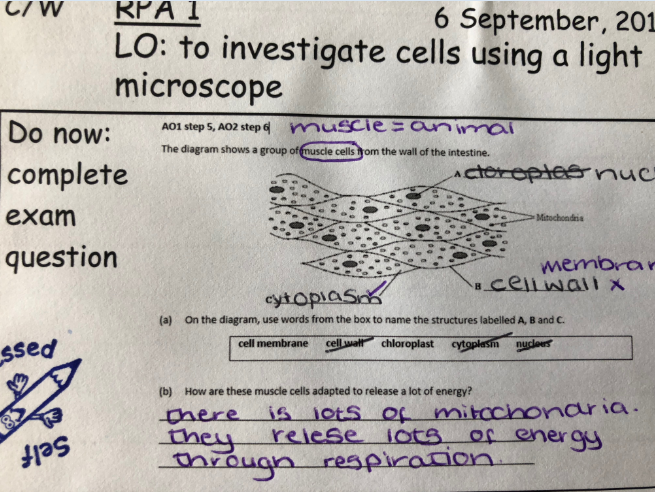 C/W RPA 1 6 September, 201
LO: to investigate cells using a light
microscope
Do now:
complete
exam
question
AO1 step 5, AO2 step 6 muscle = animal
The diagram shows a group of muscle cells from the wall of the intestine.
A cloroplas nuc
Mitochondria
membrar
B cell wall x
cytoplasm ✓
(a) On the diagram, use words from the box to name the structures labelled A, B and C.
cell membrane cell wall chloroplast cytoplasm nucleus
ssed
Self
(b) How are these muscle cells adapted to release a lot of energy?
there is lots of mitochondria.
they relese lots of energy
through respiration.